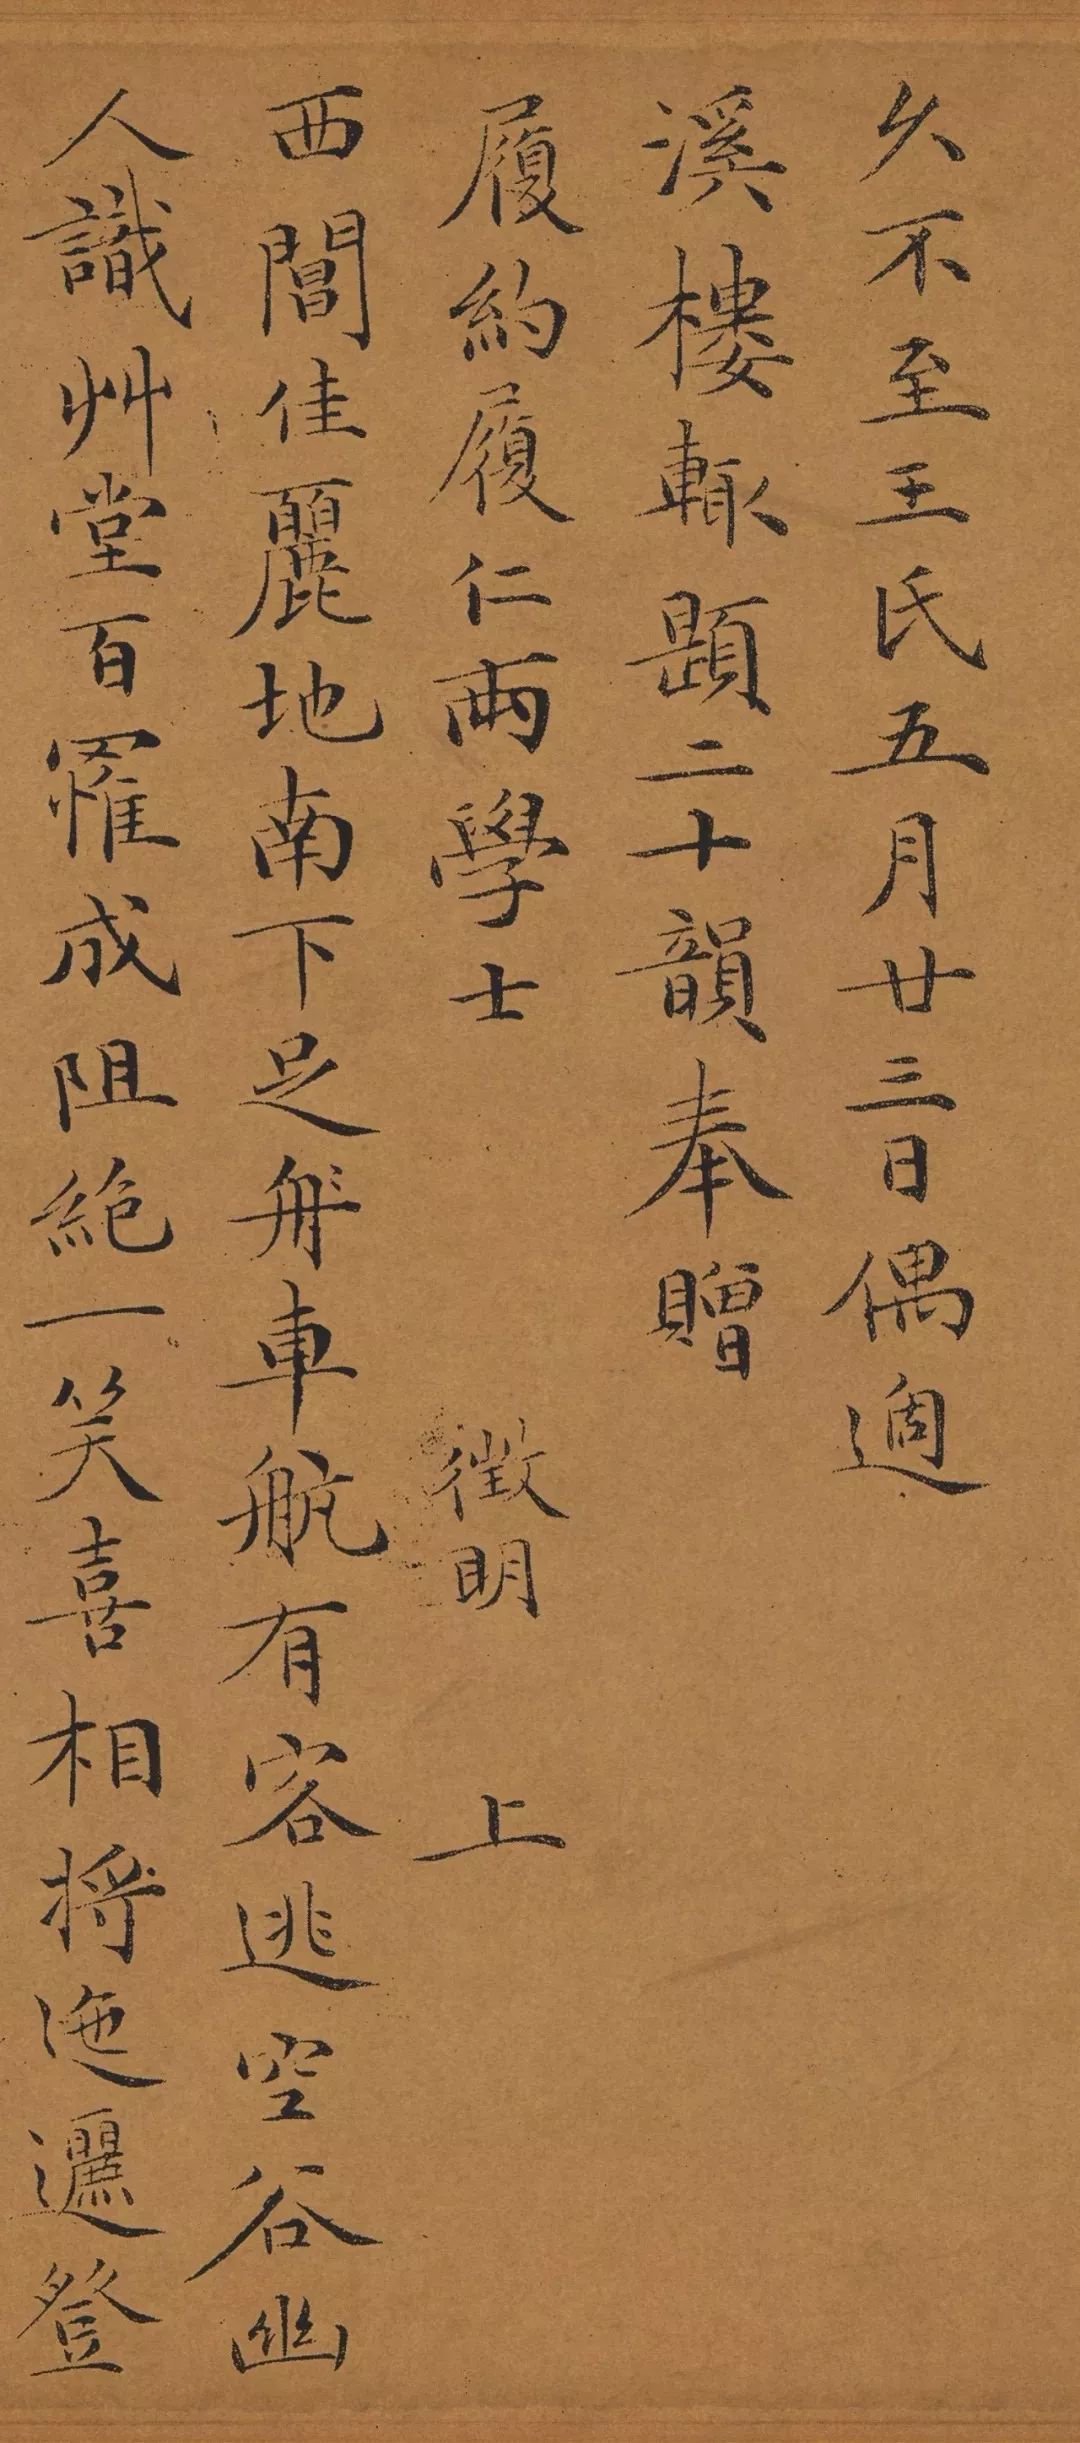 久不至王氏五月廿三日偶過
溪樓輙題二十韻奉贈
履約履仁兩學士
徵明 上
西閶佳麗地南下足舟車航有客逃空谷幽
人識艸堂百罹成阻絶一笑喜相將迤邐登